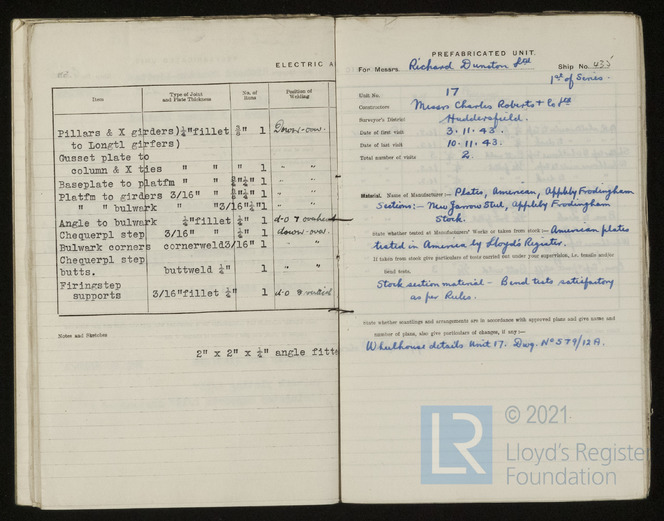 ELECTRIC A
Item
Type of Joint and Plate Thickness
No. of Runs
Position of Welding
Pillars & X girders) ¼"fillet 1 Down-over.
to Longtl girfers)
Gusset plate to
column & X ties " " " 1 " "
Baseplate to platfm " " 1 " "
Platfm to girders 3/16" " 1 " "
" " bulwark " "3/16"¼"1 " "
Angle to bulwark ¼"fillet ¼" 1 d-o & overhead
Chequerpl step 3/16" " ¼" 1 down-over.
Bulwark corners cornerweld3/16" 1 " "
Chequerpl step
butts. buttweld ¼" 1 " "
Firingstep
supports 3/16"fillet ¼" 1 d-o & vertical
Notes and Sketches
2" x 2" x ¼" angle fitte
PREFABRICATED UNIT.
For Messrs. Richard Dunston Ltd Ship No. 435
1st of Series.
Unit No. 17
Constructors Messrs Charles Roberts & Co Ltd
Surveyor's District Huddersfield.
Date of first visit 3.11.43.
Date of last visit 10.11.43.
Total number of visits 2.
Material. Name of Manufacturer:— Plates, American, Appleby Frodingham
Sections:— New Jarrow Steel, Appleby Frodingham
Stock.
State whether tested at Manufacturers' Works or taken from stock:— American plates
tested in America by Lloyd's Register.
If taken from stock give particulars of tests carried out under your supervision, i.e. tensile and/or
bend tests.
Stock section material — Bend tests satisfactory
as per Rules.
State whether scantlings and arrangements are in accordance with approved plans and give name and
number of plans, also give particulars of changes, if any:—
Wheelhouse details Unit 17. Dwg. No 579/12A.
LR
© 2021
Lloyd's Register
Foundation